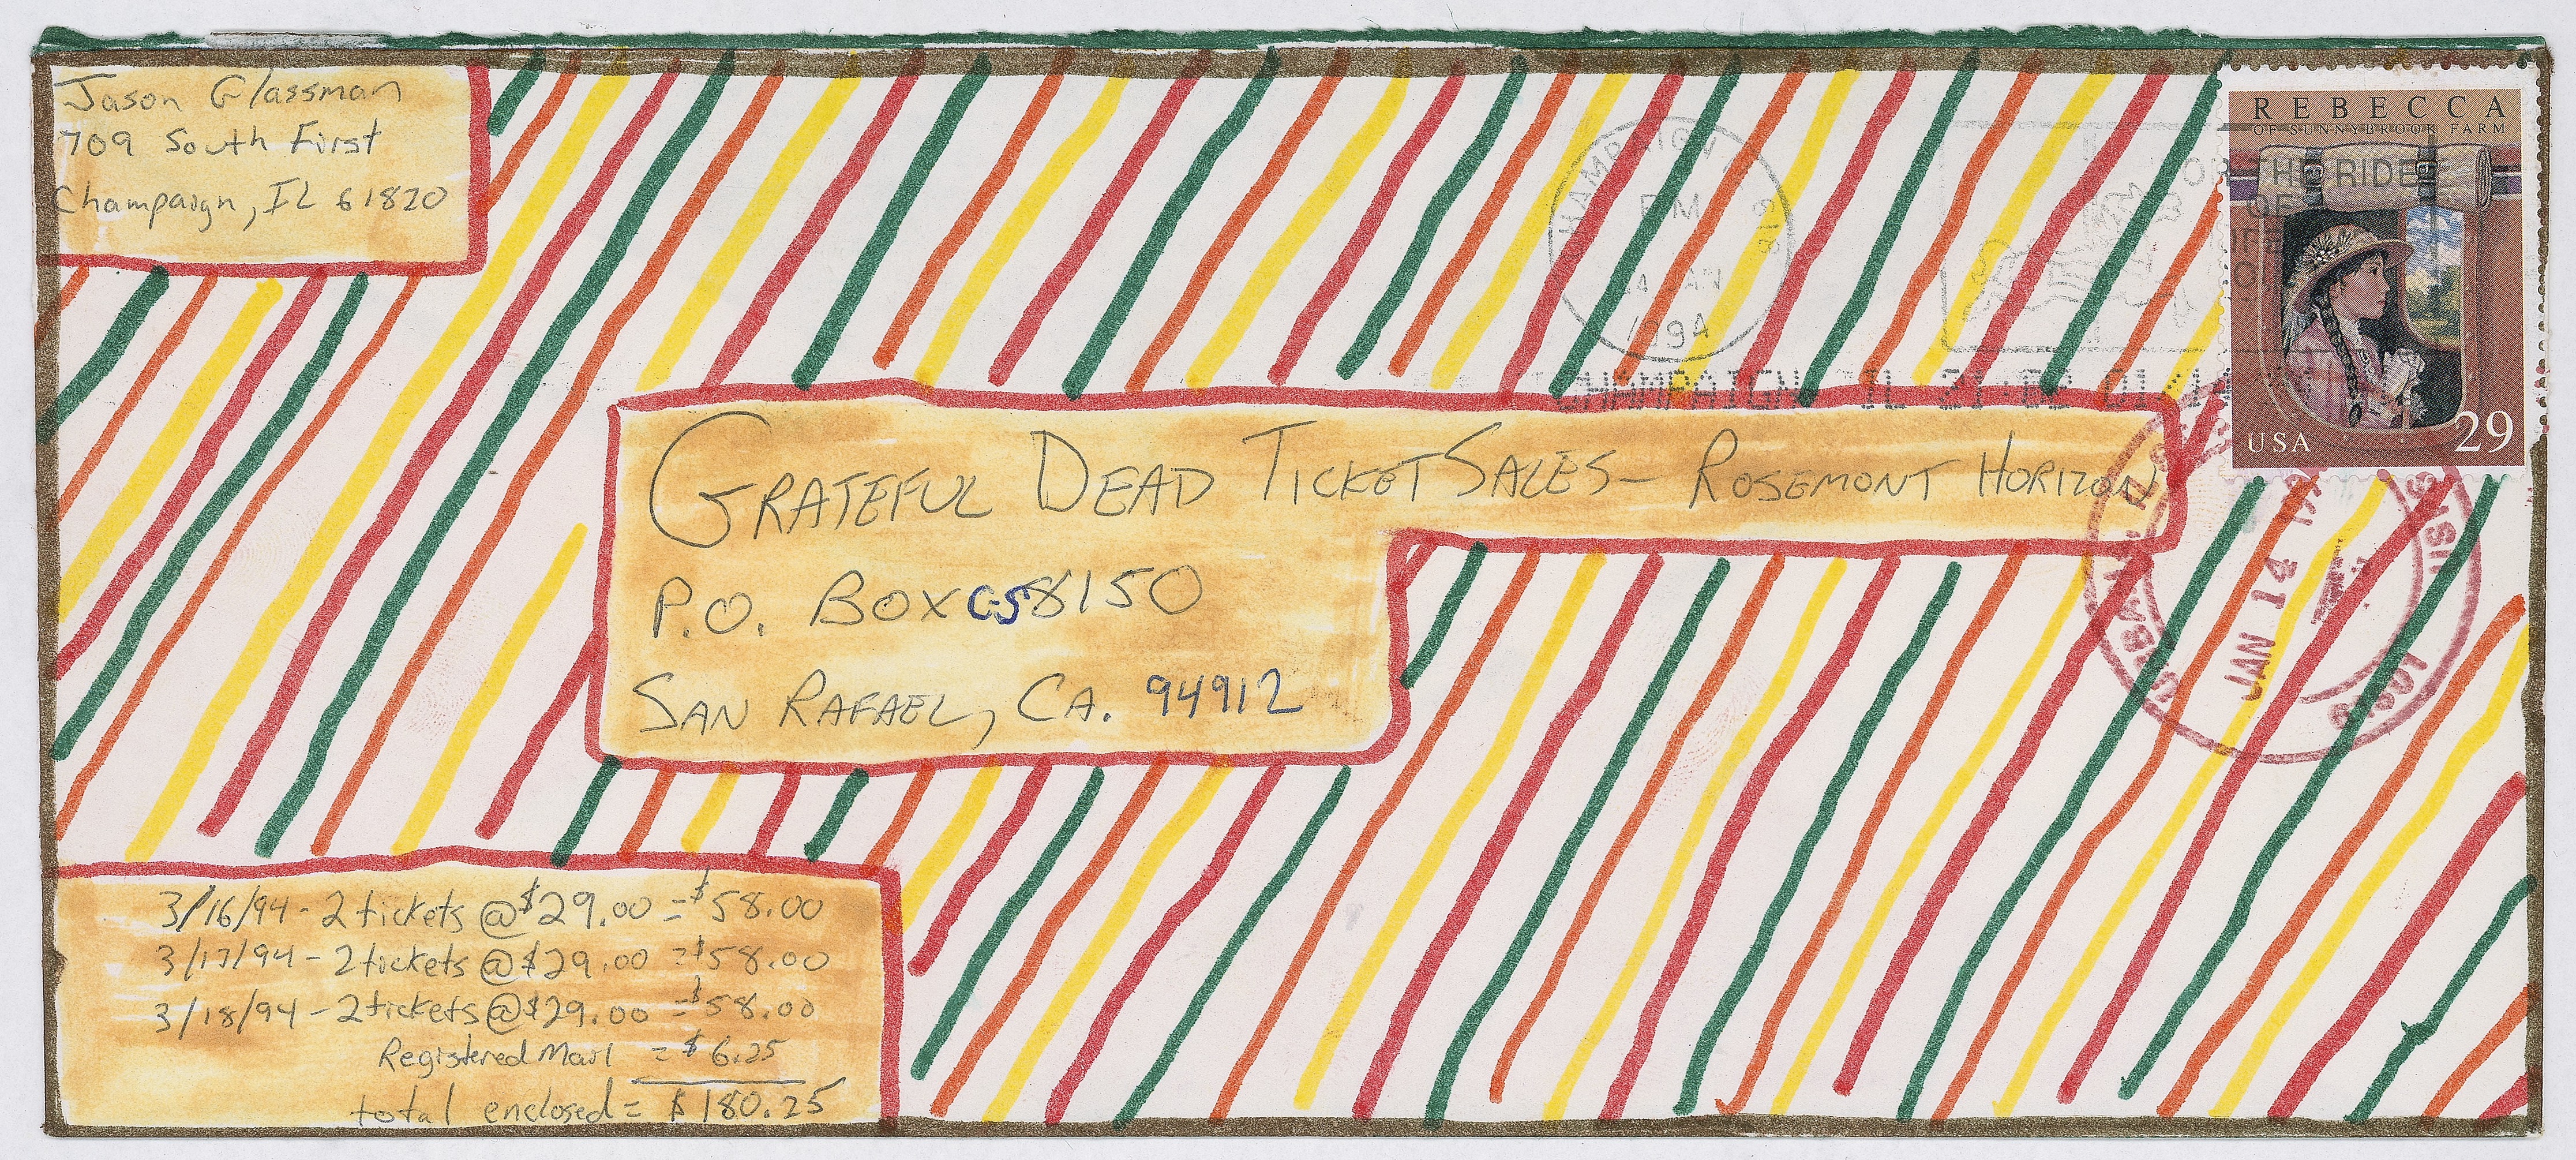 Jason Glassman
709 South First
Champaign, IL 61820
REBECCA
OF SUNNYBROOK FARM
USA 29
CHAMPAIGN
PM
14 JAN
1994
618
FOR THE RIDE
OF
CHAMPAIGN IL 21:02 01/14
GRATEFUL DEAD TICKET SALES - ROSEMONT HORIZON
P.O. BOX CS8150
SAN RAFAEL, CA. 94912
JAN 14
61801
3/16/94 - 2 tickets @ $29.00 = $58.00
3/17/94 - 2 tickets @ $29.00 = $58.00
3/18/94 - 2 tickets @ $29.00 = $58.00
Registered Mail = $6.25
total enclosed = $180.25